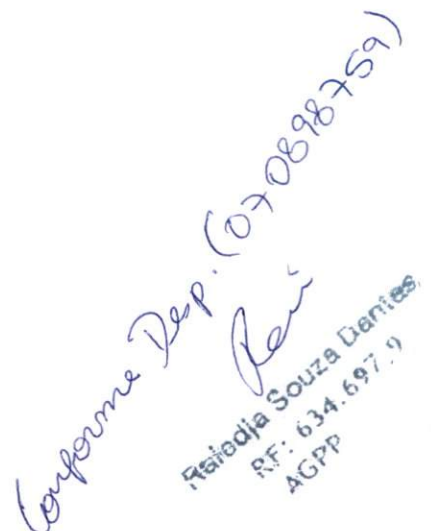 Conforme Desp. (070898759)
Raiodja Souza Dantas
RF: 634.697.9
AGPP